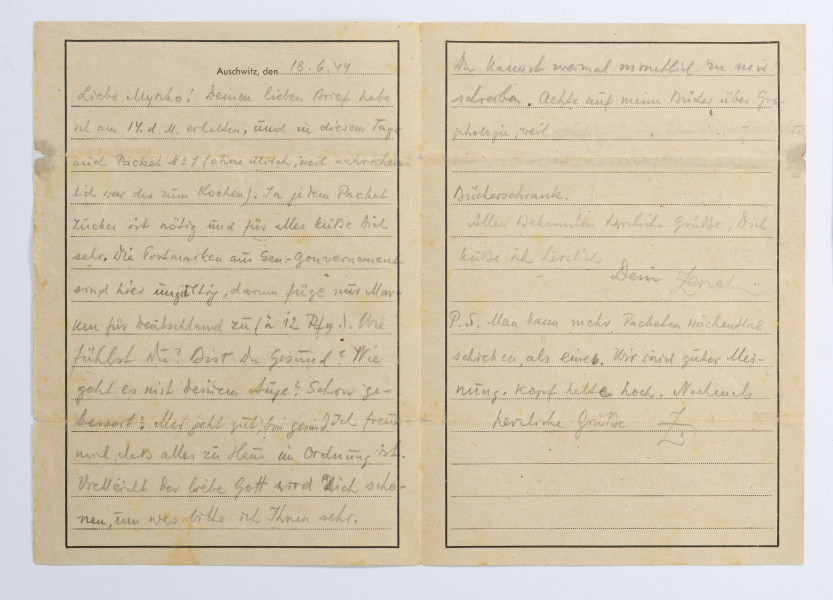 Auschwitz, den 18.6.44
Liebe Myszko! Deinen lieben Brief habe
ich am 14. d. M. erhalten, und in diesem Tage
auch Packet No 1 (ohne Milch, weil wahrschein-
lich war das zum Kochen). In jedem Packet
Zucker ist nötig und für alles küße Dich
sehr. Die Postmarken aus Gen-Gouvernement
sind hier ungültig, darum füge nur Mar-
ken für Deutschland zu (à 12 Pfg.). Wie
fühlst Du? Bist Du Gesund? Wie
geht es mit deinem Auge? Schon ge-
bessert? Mir geht gut, bin gesund. Ich freue
mich, daß alles zu Haus in Ordnung ist.
Vielleicht der liebe Gott wird Dich scho-
nen, um was bitte ich Ihnen sehr.
Du kannst zweimal monatlich zu mir
schreiben. Achte auf meine Bücher über Gra-
phologie, weil
Bücherschrank.
Allen Bekannten herzliche Grüße, Dich
küße ich herzlich
Dein
P.S. Man kann mehr Packeten Wöchentlich
schicken, als eines. Wir sind guter Mei-
nung. Kopf halte hoch. Nochmals
herzliche Grüße Z.